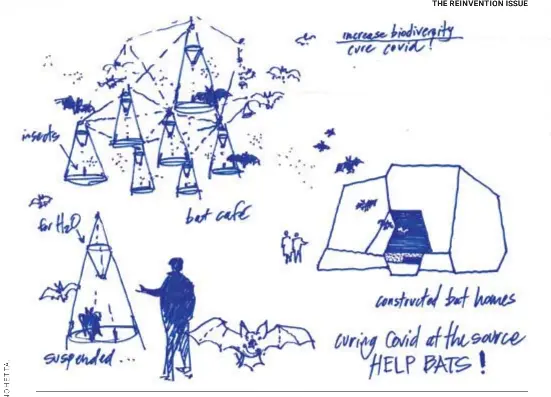 THE REINVENTION ISSUE
increase biodiversity
cure covid!
insects
bat café
for H2O
suspended...
constructed bat homes
curing Covid at the source
HELP BATS!